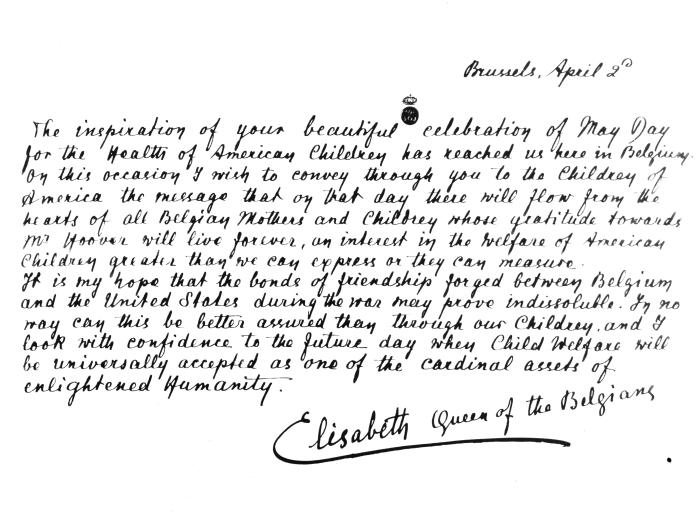 Brussels, April 2d
The inspiration of your beautiful celebration of May Day
for the Health of American Children has reached us here in Belgium.
On this occasion I wish to convey through you to the Children of
America the message that on that day there will flow from the
hearts of all Belgian Mothers and Children whose gratitude towards
Mr Hoover will live forever, an interest in the Welfare of American
Children greater than we can express or they can measure.
It is my hope that the bonds of friendship forged between Belgium
and the United States during the war may prove indissoluble. In no
way can this be better assured than through our Children, and I
look with confidence to the future day when Child Welfare will
be universally accepted as one of the cardinal assets of
enlightened Humanity.
Elisabeth Queen of the Belgians